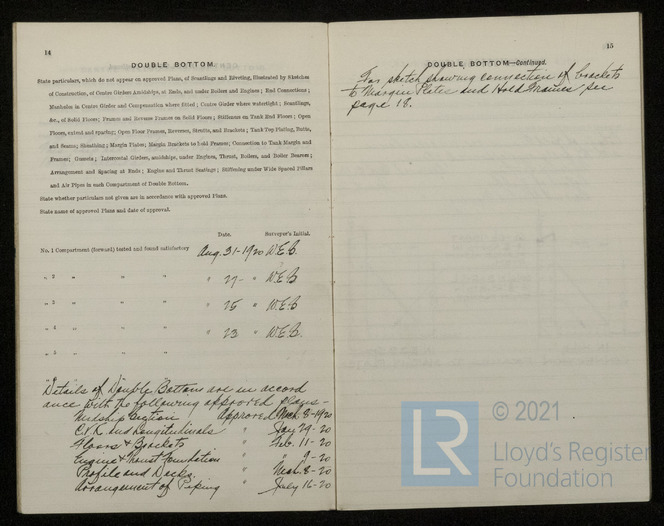 14
DOUBLE BOTTOM
State particulars, which do not appear on approved Plans, of Scantlings and Riveting, illustrated by Sketches
of Construction, of Centre Girders Amidships, at Ends, and under Boilers and Engines; End Connections;
Manholes in Centre Girder and Compensation where fitted; Centre Girder where watertight; Scantlings,
&c., of Solid Floors; Frames and Reverse Frames on Solid Floors; Stiffeners on Tank End Floors; Open
Floors, extent and spacing; Open Floor Frames, Reverses, Struts, and Brackets; Tank Top Plating, Butts,
and Seams; Sheathing; Margin Plates; Margin Brackets to Hold Frames; Connection to Tank Margin and
Frames; Gussets; Intercostal Girders, amidships, under Engines, Thrust, Boilers, and Boiler Bearers;
Arrangement and Spacing at Ends; Engine and Thrust Seatings; Stiffening under Wide Spaced Pillars
and Air Pipes in each Compartment of Double Bottom.
State whether particulars not given are in accordance with approved Plans.
State name of approved Plans and date of approval.
Date. Surveyor's Initial.
No. 1 Compartment (forward) tested and found satisfactory Aug. 31-1920 W.E.B.
" 2 " " " " 27- " W.E.B
" 3 " " " " 25 " W.E.B
" 4 " " " " 23 " W.E.B.
" 5 " " "
Details of Double Bottom are in accord
ance with the following approved plans -
Midship Section Approved Mch. 8-1920
C.V.K. and Longitudinals " Jay 29-20
Floors & Brackets " Feb. 11-20
Engine & Thrust Foundation " " 9-20
Profile and Decks. " Mch. 8-20
Arrangement of Piping " July 16-20
15
DOUBLE BOTTOM—Continued.
For sketch showing connection of brackets
to Margin Plates and Hold Frames see
page 18.
© 2021
LR
Lloyd's Register
Foundation